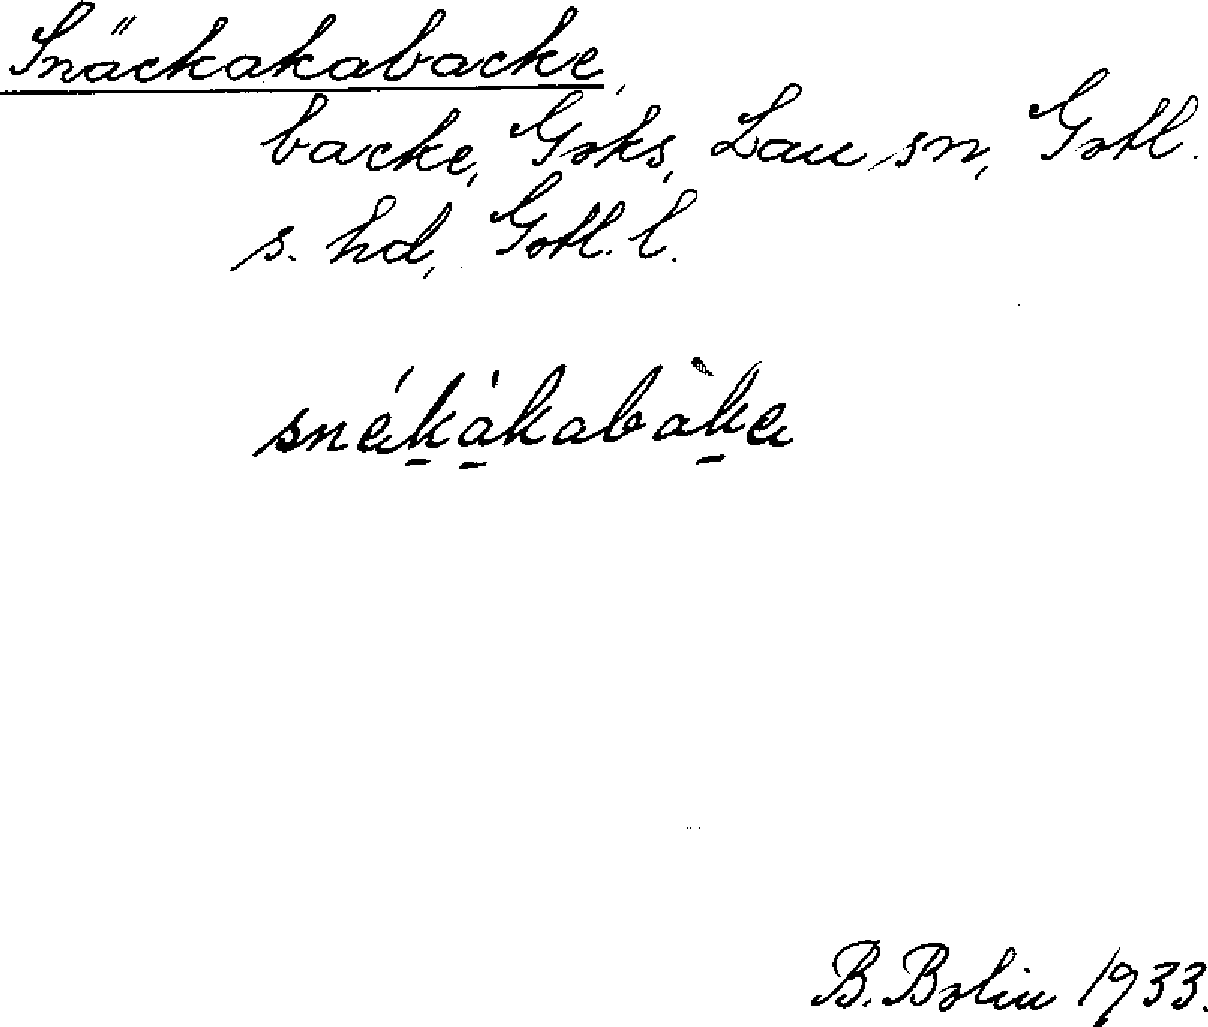 Snäckakabacke,
backe, Goks, Lau sn, Gotl.
s. hd, Gotl. l.
snék̠à̠kabàk̠e
B. Bolin 1933.